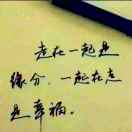 走在一起是
缘分，一起在走
是幸福。